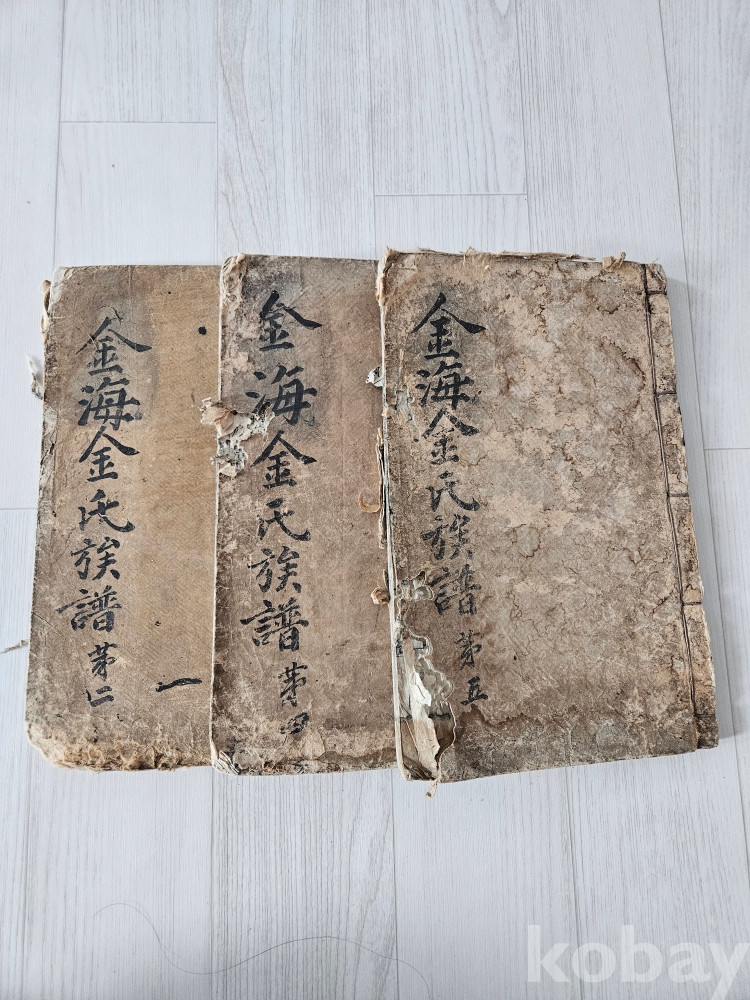 金海金氏族譜 第二
一
金海金氏族譜 第四
金海金氏族譜 第五
kobay